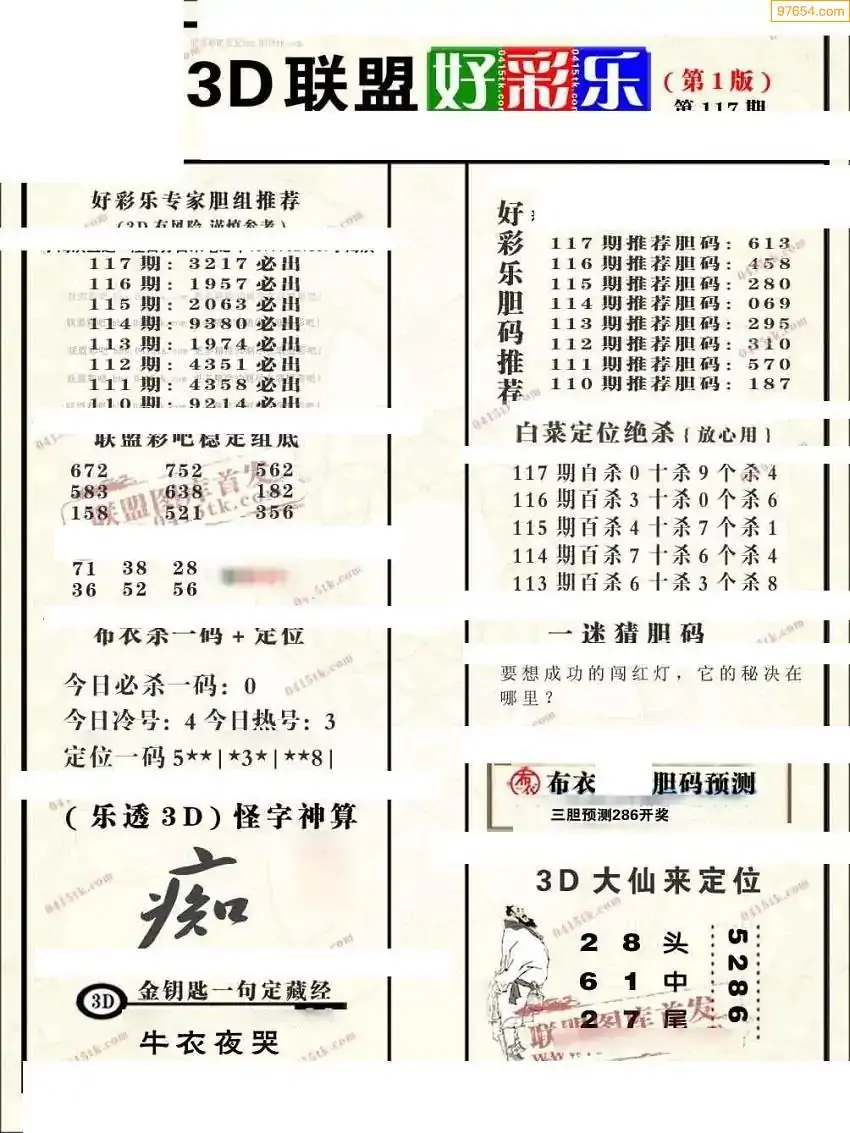 97654.com
3D联盟好彩乐
(第1版)
第117期
好彩乐专家胆组推荐
(3D有风险 谨慎参考)
117期: 3217必出
116期: 1957必出
115期: 2063必出
114期: 9380必出
113期: 1974必出
112期: 4351必出
111期: 4358必出
110期: 9214必出
联盟彩吧稳定组底
672 752 562
583 638 182
158 521 356
71 38 28
36 52 56
布衣杀一码+定位
今日必杀一码: 0
今日冷号: 4 今日热号: 3
定位一码 5**|*3*|**8|
(乐透3D)怪字神算
痴
3D 金钥匙一句定藏经
牛衣夜哭
好彩乐胆码推荐
117期推荐胆码: 613
116期推荐胆码: 458
115期推荐胆码: 280
114期推荐胆码: 069
113期推荐胆码: 295
112期推荐胆码: 310
111期推荐胆码: 570
110期推荐胆码: 187
白菜定位绝杀{放心用}
117期百杀0十杀9个杀4
116期百杀3十杀0个杀6
115期百杀4十杀7个杀1
114期百杀7十杀6个杀4
113期百杀6十杀3个杀8
一迷猜胆码
要想成功的闯红灯，它的秘决在
哪里？
布衣 胆码预测
三胆预测286开奖
3D大仙来定位
2 8 头
6 1 中
2 7 尾
5286
联盟图库首发
0415tk.com